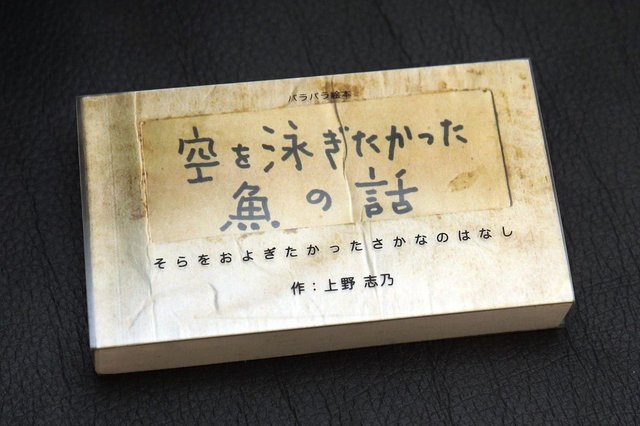 パラパラ絵本
空を泳ぎたかった
魚の話
そらをおよぎたかったさかなのはなし
作：上野 志乃